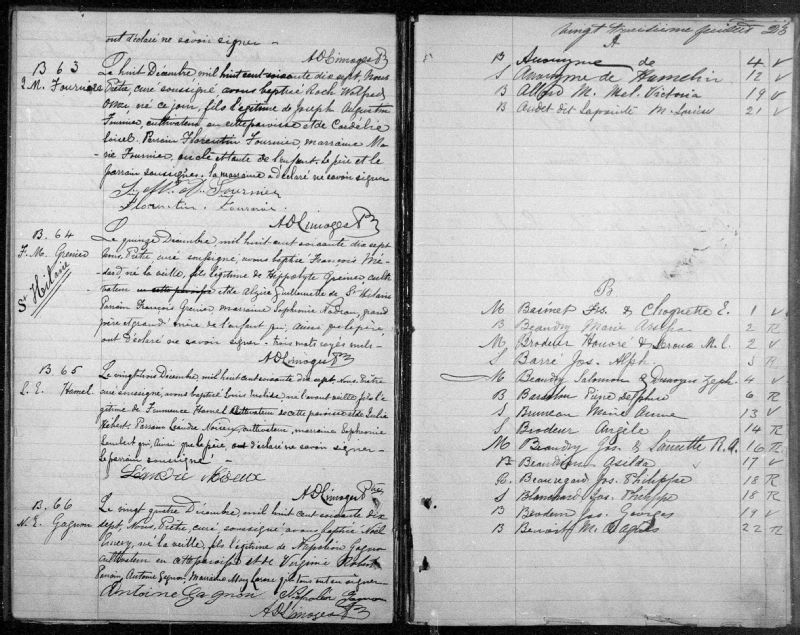 ont déclaré ne savoir signer -
A D Limoges Ptre
B 63
Le huit Décembre, mil huit cent soixante dix sept, Nous
Prêtre curé soussigné avons baptisé Roch Wilfred
né ce jour, fils légitime de Joseph Augustin
Fournier, cultivateur en cette paroisse et de Cordélie
Loisel. Parrain Florentin Fournier, marraine Ma-
rie Fournier, oncle et tante de l'enfant. Le père et le
parrain soussignés. La marraine a déclaré ne savoir signer
Fournier
Florentin Fournier
A D Limoges Ptre
B. 64
F. M. Grenier
St Hilaire
Le quinze Décembre, mil huit cent soixante dix sept
Nous, Prêtre, curé soussigné, avons baptisé François Mé-
né la veille, fils légitime de Hippolyte Grenier culti-
vateur en cette paroisse et de Alzire Guillemette de St Hilaire
Parrain François Grenier marraine Sophronie Nadeau, grand
père et grand'mère de l'enfant qui, ainsi que le père,
ont déclaré ne savoir signer - trois mots rayés nuls -
A D Limoges Ptre
B. 65
L. E. Hamel
Le vingt Décembre, mil huit cent soixante dix sept, Nous, Prêtre
curé soussigné, avons baptisé Louis né l'avant veille, fils lé-
gitime de Hamel cultivateur de cette paroisse et de Julie
Hébert. Parrain Léandre cultivateur, marraine Sophronie
Lambert qui, ainsi que le père ont déclaré ne savoir signer -
le parrain soussigné -
A D Limoges Ptre
B. 66
N. E. Gagnon
Le vingt quatre Décembre, mil huit cent soixante dix
sept, Nous, Prêtre, curé soussigné avons baptisé Noël
né la veille, fils légitime de Napoléon Gagnon
cultivateur en cette paroisse et de Virginie
Parrain, Antoine Gagnon, Marraine
Antoine Gagnon Napoléon Gagnon
A D Limoges Ptre
vingt troisième feuillet 23
A
B Anonyme de 4 V
S Anonyme de Hamelin 12 V
B Allard M. Mel. Victoria 19 V
B Audet dit Lapointe M. 21 V
B
M Basinet Frs. & Choquette E. 1 V
B Beaudry Marie 2 R
M Brodeur Honoré & Leroux M. L. 2 V
S Barré Jos. Alph. 3 R
M Beaudry Salomon & Zeph. 4 V
B 6 R
S Bruneau Marie Anne 13 V
S Brodeur Angèle 14 R
M Beaudry Jos. & R. A. 16 R
B Beaudoin 17 V
B. Beauregard Jos. Philippe 18 R
S Blanchard Jos. Philippe 18 R
B Brodeur Jos. Georges 19 V
B Benoit M. Agnès 22 R